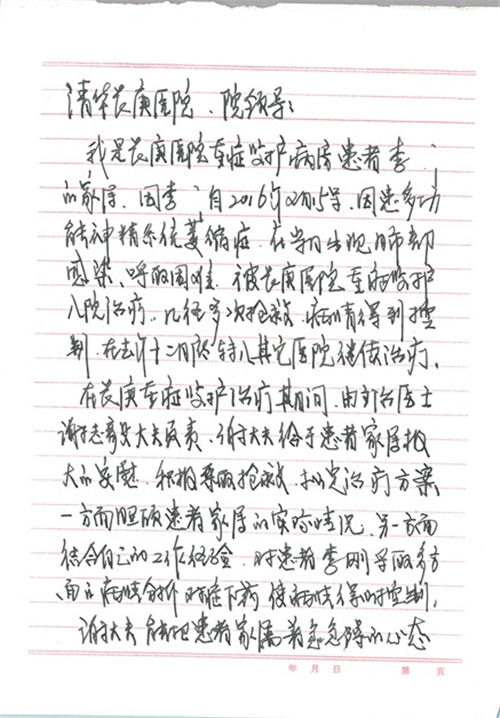 清华长庚医院、院领导：
我是长庚医院重症监护病房患者李
的家属、因李 自2016年2月15号、因患多功
能神精系统萎缩症、在学习出现肺部
感染、呼吸困难、被长庚医院重症监护
入院治疗、几经多次抢救、病情得到控
制、在去年十二月底转入其它医院继续治疗。
在长庚重症监护治疗期间、由主治医士
谢志 大夫负责、谢大夫给于患者家属极
大的安慰、积极 取抢救、拟定治疗方案
一方面 患者家属的实际情况、另一方面
结合自己的工作经验、对患者李刚 取多方
面的病情分析对症下药使病情得 控制。
谢大夫能把患者家属着急 的心态
年 月 日 第 页